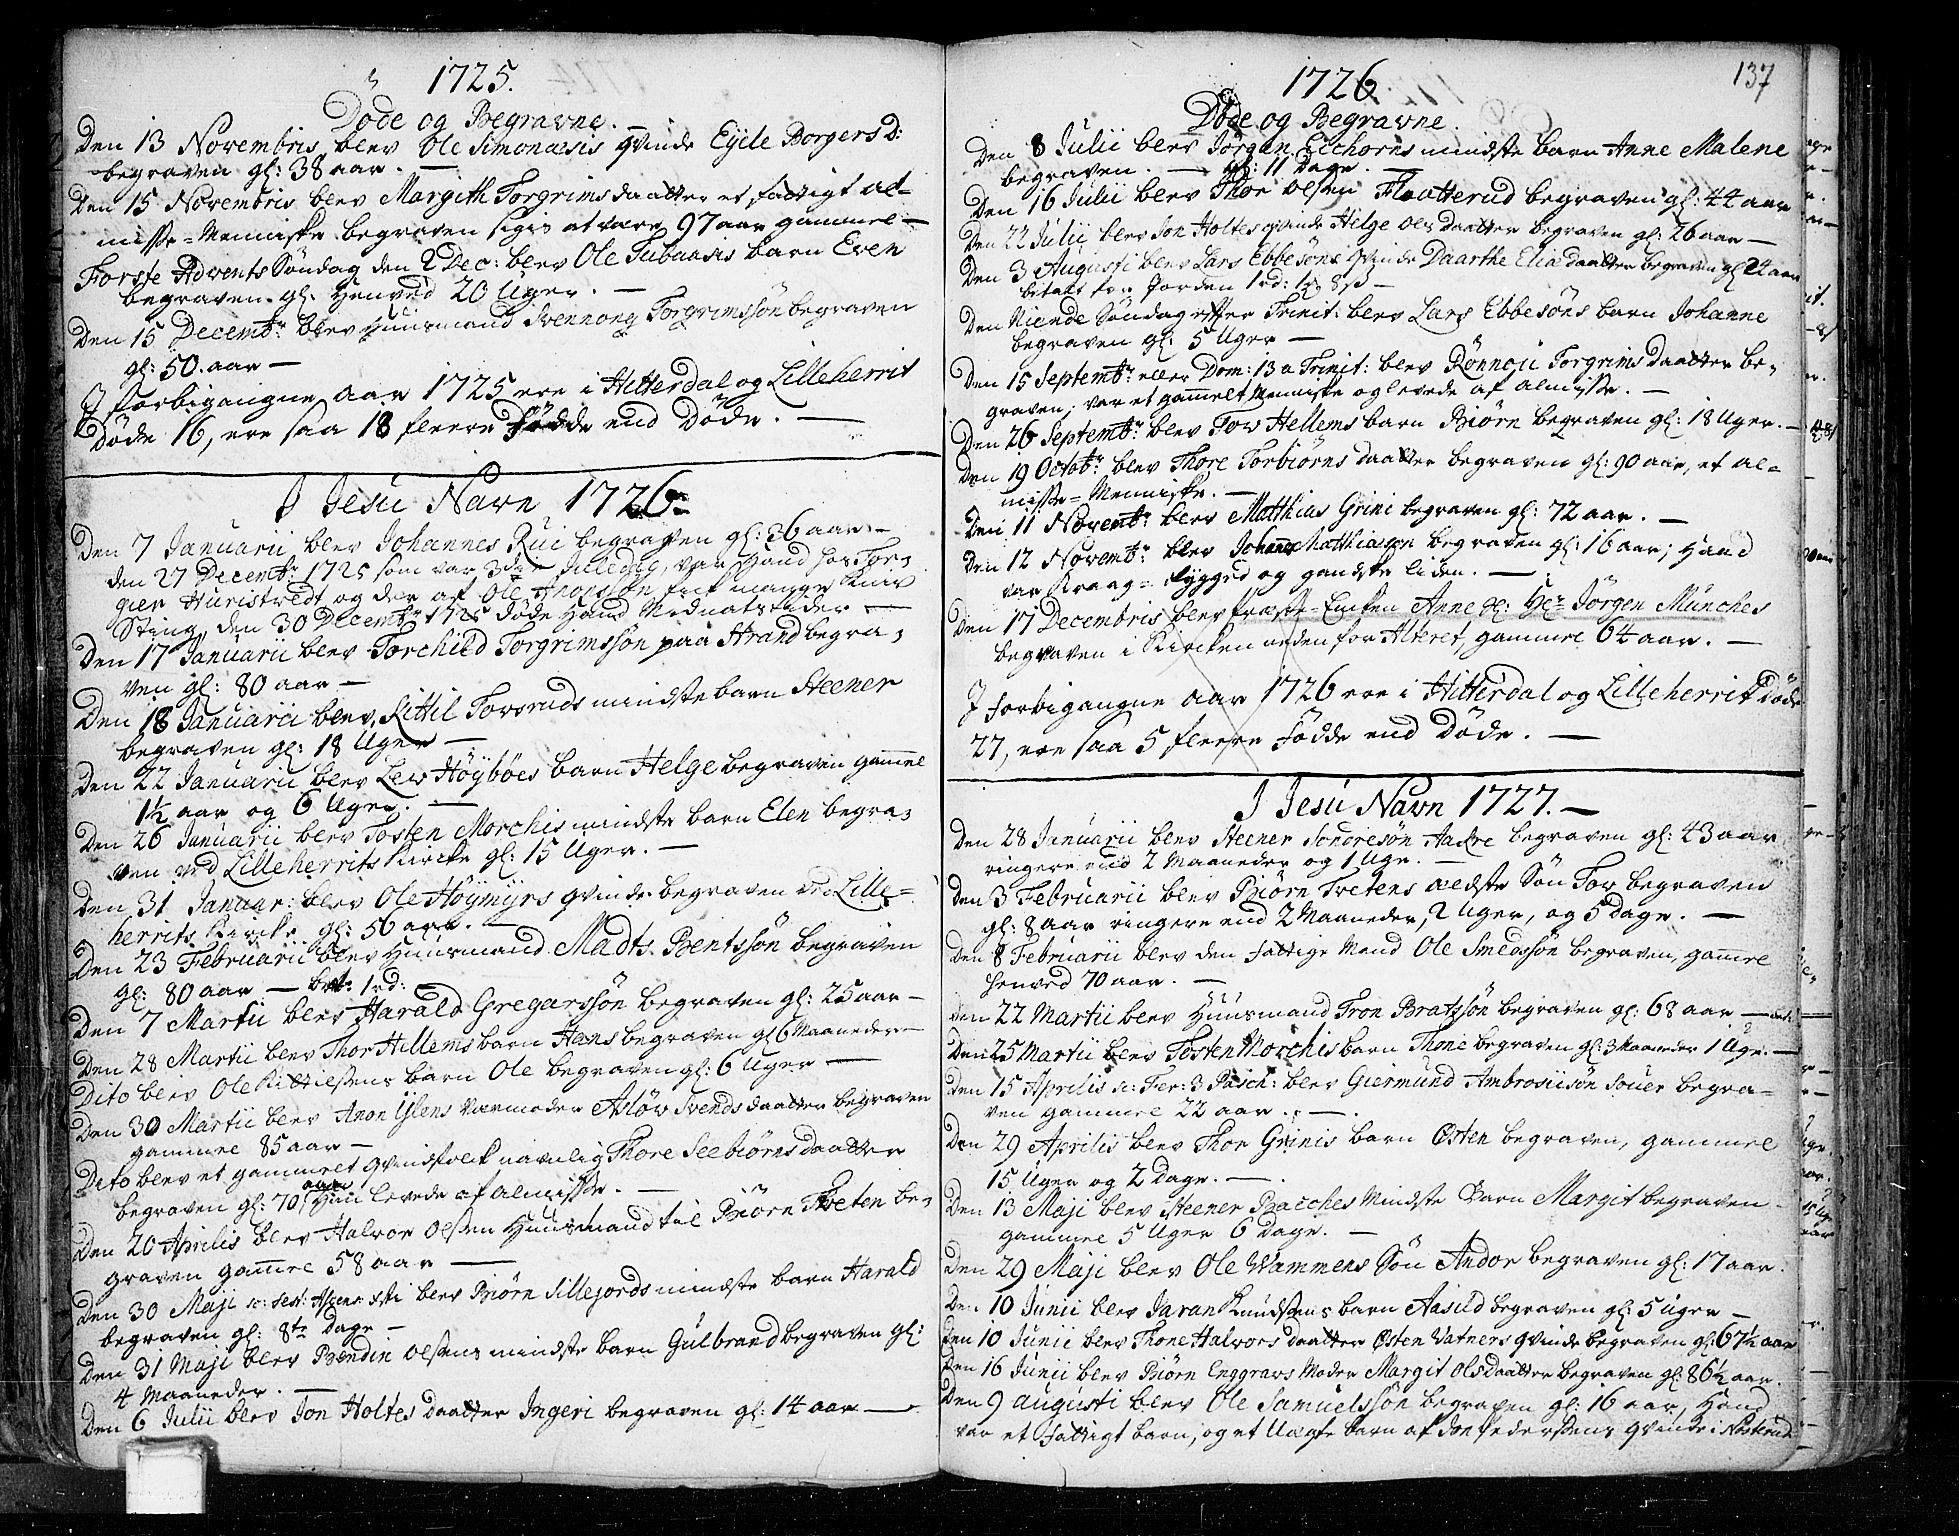 1725.
Døde og Begravne.
Den 13 Novembris blev Ole Simonæsis qvinde Eyele Borgers D:
begraven gl: 38 aar. —
Den 15 Novembris blev Margith Torgrims daatter et fattigt al-
misse-Menniske begraven sigis at være 97 aar gammel —
Første Advents Søndag den 2 Dec: blev Ole Tubaasis barn Even
begraven gl. henved 20 Uger. —
Den 15 Decembr: blev Huusmand Svennong Torgrimssøn begraven
gl: 50 aar —
I forbigangne aar 1725 ere i Hitterdal og Lilleherrit
Døde 16, ere saa 18 fleere Fødde end Døde. —
I Jesu Navn 1726
Den 7 Januarii blev Johannes Rui begraven gl: 36 aar —
den 27 Decembr: 1725 som var 3die Juledag, var Hand hos Tor-
gier Huristvedt og der af Ole Thorssøn fik mange Kniv
Sting, den 30 Decembr 1725 døde Hand Midnatstider —
Den 17 Januarii blev Torchild Torgrimssøn paa Strand begra-
ven gl: 80 aar —
Den 18 Januarii blev Kittil Torsruds mindste barn Steener
begraven gl: 18 Uger —
Den 22 Januarii blev Lew Høybøes barn Helge begraven gammel
1½ aar og 6 Uger. —
Den 26 Januarii blev Tosten Morchis mindste barn Elen begra-
ven ved Lilleherrits Kircke gl: 15 Uger. —
Den 31 Januar: blev Ole Høymyrs qvinde begraven ved Lille-
herrits Kircke gl: 56 aar.
Den 23 Februarii blev Huusmand Madts Bentssøn begraven
gl: 80 aar — bet: 1 rd:
Den 7 Martii blev Harald Gregarssøn begraven gl: 25 aar —
Den 28 Martii blev Thor Hellems barn Hans begraven gl 6 Maaneder —
Dito blev Ole Kittilsens barn Ole begraven gl: 6 Uger —
Den 30 Martii blev Anon Ylens Værmoder Asløw Svends daatter begraven
gammel 85 aar —
Dito blev et gammelt qvindfolck navnlig Thore Seebiørns daatter
begraven gl: 70 aar Hun levede af almisse. —
Den 20 Aprilis blev Halvor Olssen Huusmand til Biørn Treten be-
graven gammel 58 aar —
Den 30 Maji blev Biørn Sillejords mindste barn Harald
begraven gl: 8te Dage —
Den 31 Maji blev Bendin Olssens mindste barn Gulbrand begraven gl:
4 Maaneder. —
Den 6 Julii blev Jon Holtes daatter Ingeri begraven gl: 14 aar —
1726 137
Døde og Begravne.
Den 8 Julii blev Jørgen Eichorns mindste barn Anne Malene
begraven. — gl: 11 Dage. —
Den 16 Julii blev Thor Olsen Flaatterud begraven gl: 44 aar
Den 22 Julii blev Jon Holtes qvinde Helge Ols daatter begraven gl: 26 aar —
Den 3 Augusti blev Lars Ebbesøns Qvinde Daarthe Elia daatter begraven gl 24 aar
betalt for Jorden 1 rd: 1 8 ß —
Den Niende Søndag efter Trinit: blev Lars Ebbesøns barn Johanne
begraven gl: 5 Uger —
Den 15 Septembr: eller Dom: 13 a Trinit: blev Rønnoju Torgrims daatter be-
graven, var et gammelt Menniske og levede af almisse. —
Den 26 Septembr: blev Tow Hellems barn Biørn begraven gl: 18 Uger. —
Den 19 Octobr: blev Thore Torbiørns daatter begraven gl: 90 aar, et al-
misse-Menniske. —
Den 11 Novembr: blev Matthias Grini begraven gl: 72 aar. —
Den 12 Novembr: blev Johannes Matthiassøn begraven gl: 16 aar; Hand
var Kraag-rygged og gandske liden. —
Den 17 Decembris blev Præste-Encken Anne Hr: Jørgen Münches
begraven i Kircken neden for Alteret, gammel 64 aar. —
I forbigangne aar 1726 ere i Hitterdal og Lilleherrit Døde
27, ere saa 5 fleere Fødde end Døde. —
I Jesu Navn 1727. —
Den 28 Januarii blev Steener Sondresøn Aackre begraven gl: 43 aar
ringere end 2 Maaneder og 1 Uge. —
Den 3 Februarii blev Biørn Tretens ældste Søn Tov begraven
gl: 8 aar ringere end 2 Maaneder, 2 Uger, og 5 Dage. —
Den 8 Februarii blev den fattige Mand Ole Smedssøn begraven, gammel
henved 70 aar. —
Den 22 Martii blev Huusmand Tron Bratssøn begraven gl: 68 aar —
Den 25 Martii blev Tosten Morchis barn Thone begraven gl: 3 Maaneder 1 Uge. —
Den 15 Aprilis sc: Fer: 3 Pasch: blev Giermund Ambrosiisøn Souer begra-
ven gammel 22 aar. —
Den 29 Aprilis blev Thor Grinis barn Østen begraven, gammel
15 Uger og 2 Dage. —
Den 13 Maji blev Steener Bacches Mindste Barn Margit begraven
gammel 5 Uger 6 Dage. —
Den 29 Maji blev Ole Wammens Søn Andor begraven gl: 17 aar.
Den 10 Junii blev Jaran Knudsens barn Aasild begraven gl: 5 Uger —
Den 10 Junii blev Thone Halvors daatter Østen Vatners qvinde begraven gl: 67½ aar
Den 16 Junii blev Biørn Enggravs Moder Margit Olsdaatter begraven gl: 86½ aar.
Den 9 augusti blev Ole Samuelssøn begraven gl: 16 aar, Hand
var et fattigt barn, og et Uægte barn af Jon Pederssens qvinde i Nosterud